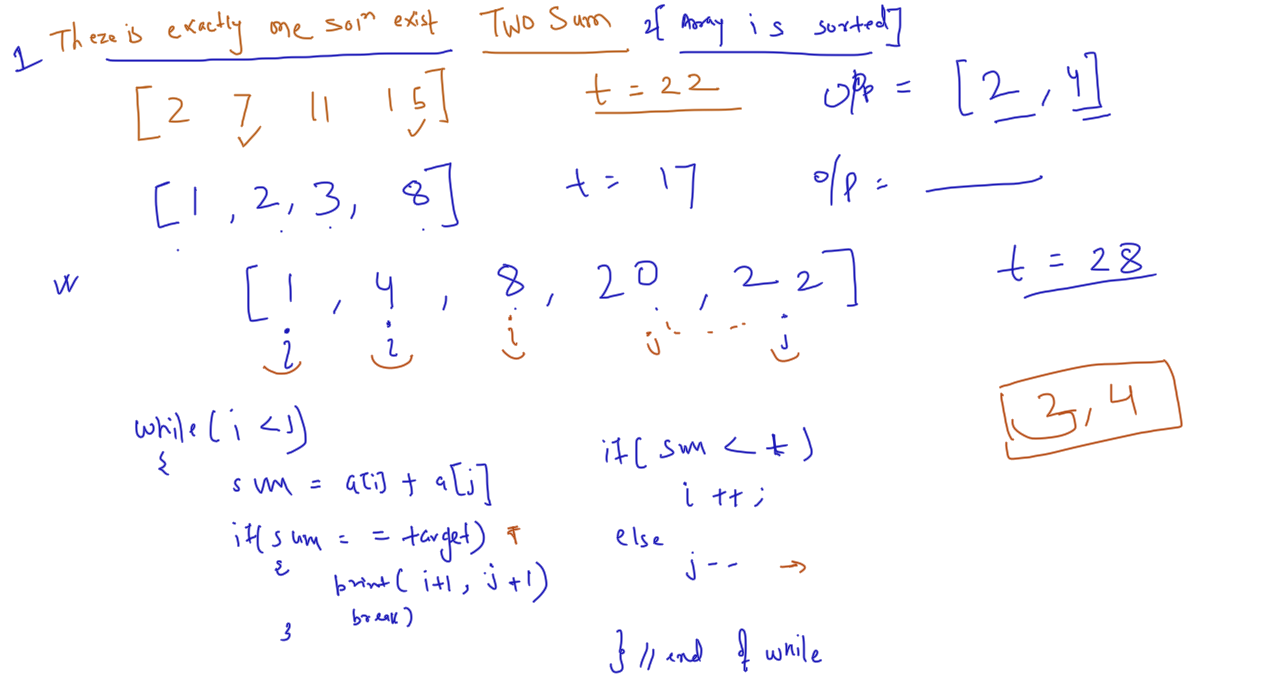 1 There is exactly one soln exist Two Sum 2[ Array is sorted]
[2 7 11 15] t = 22 o/p = [2, 4]
[1, 2, 3, 8] t = 17 o/p =
[1, 4, 8, 20, 22] t = 28
i i i j j
3, 4
while(i<j)
{
sum = a[i] + a[j]
if(sum == target)
{
print(i+1, j+1)
break)
}
if(sum < t)
i++;
else
j--
} // end of while